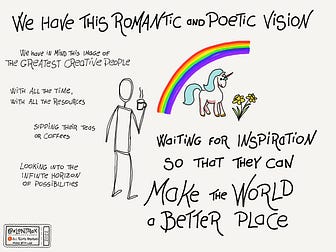 We have this Romantic and Poetic Vision
We have in mind this image of
the Greatest Creative People
With all the time,
with all the resources
Sipping their teas
or coffees
Looking into the
infinte horizon
of possibilities
Waiting for Inspiration
so that they can
Make the World
a Better Place